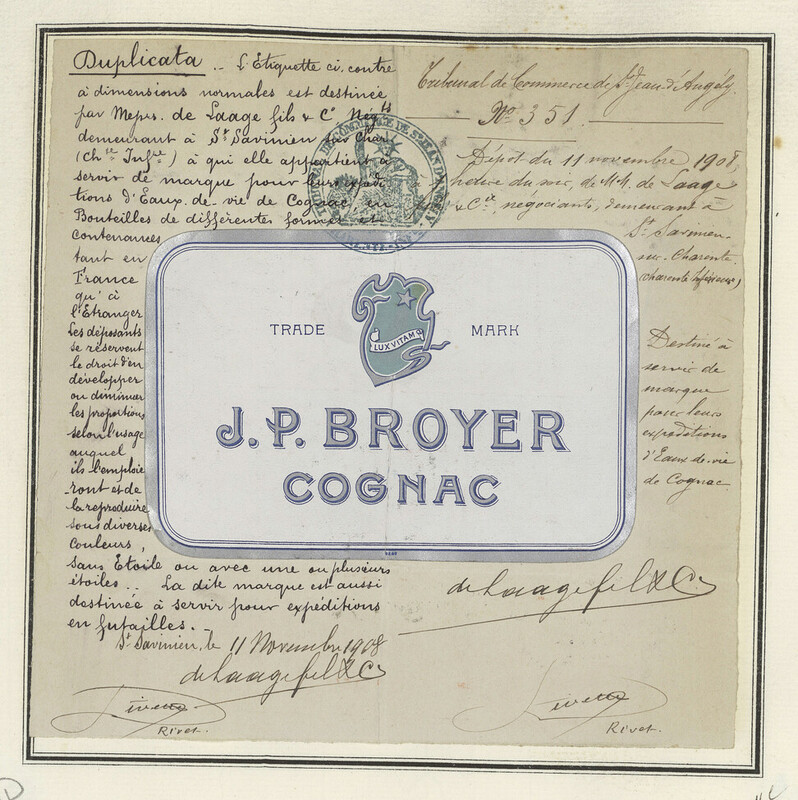 Duplicata _ L'Etiquette ci. contre
à dimensions normales est destinée
par Mesrs. de Laage fils & Cº Négts
demeurant à St Savinien sur Char
(Chte Infre) à qui elle appartient à
servir de marque pour leurs expédi
tions d'Eaux. de. vie de Cognac, en
Bouteilles de différentes formes et
contenances
tant en
France
qu'à
l'Etranger
Les déposants
se réservent
le droit d'en
développer
ou diminuer
les proportions
selon l'usage
auquel
ils l'emploie
ront et de
la reproduire
sous diverses
couleurs,
sans Etoile ou avec une ou plusieurs
étoiles _ La dite marque est aussi
destinée à servir pour expéditions
en futailles. _
St Savinien, le 11 Novembre 1908
de Laage fils & Cº
Rivet.
Tribunal de Commerce de St Jean d'Angély.
Nº 351.
Dépôt du 11 novembre 1908,
heure du soir, de M.M. de Laage
& Cie, négociants, demeurant à
St Savinien
sur. Charente
(Charente Inférieure)
Destiné à
servir de
marque
pour leurs
expéditions
d'Eaux-de-vie
de Cognac.
de Laage fils & Cº
Rivet.
TRADE MARK
LUX VITAM
J.P. BROYER
COGNAC